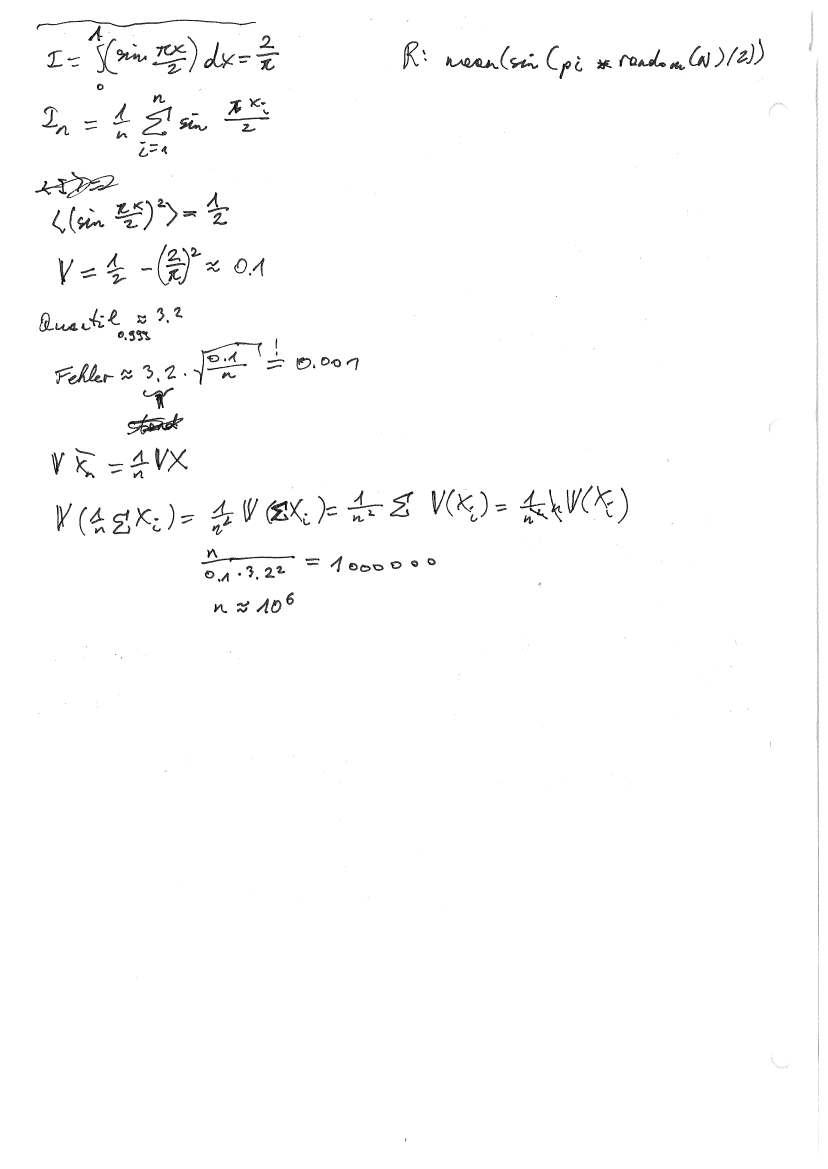 I = ∫₀¹ (sin πx/2) dx = 2/π
R: mean(sin(pi * random(N)/2))
Iₙ = 1/n Σᵢ₌₁ⁿ sin πxᵢ/2
⟨(sin πx/2)²⟩ = 1/2
V = 1/2 - (2/π)² ≈ 0.1
Quantil₀.₉₉₉ ≈ 3.2
Fehler ≈ 3.2 · √(0.1/n) =! 0.001
V X̄ₙ = 1/n VX
V(1/n ΣXᵢ) = 1/n² V(ΣXᵢ) = 1/n² Σ V(Xᵢ) = 1/n² n V(Xᵢ)
n/(0.1 · 3.2²) = 1000000
n ≈ 10⁶